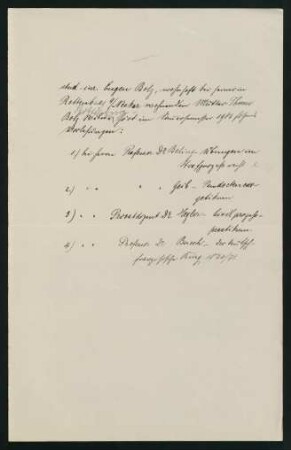 stud. iur. Eugen Bolz, wohnhaft bei seiner in
Rottenburg a/Neckar wohnenden Mutter Theres
Bolz Witwe, hört im Sommersemester 1904 folgende
Vorlesungen:
1) bei Herrn Professor Dr Beling – Übungen im
Strafprozessrecht
2) " " " Geib – Pandektenexe-
getikum
3) " " Privatdozent Dr Hegler – Civilprozess-
praktikum
4) " " Professor Dr. Busch – der deutsch-
französische Krieg 1870/71